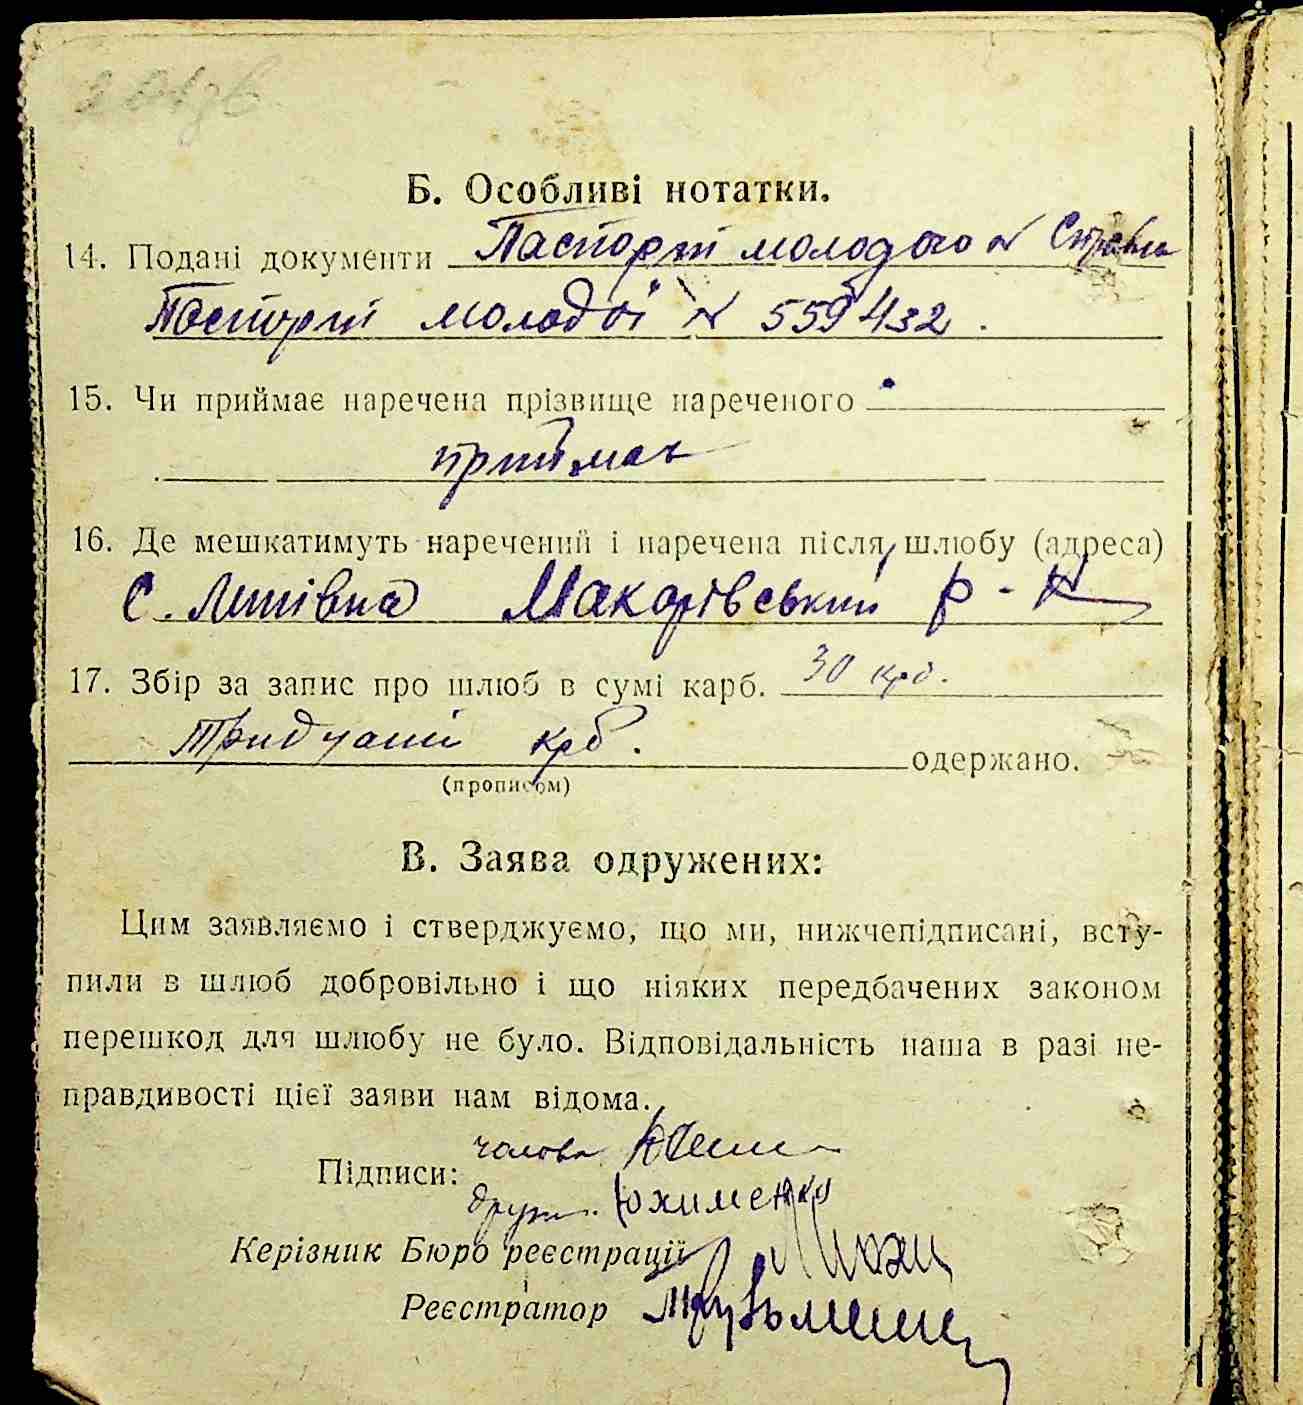 Б. Особливі нотатки.
14. Подані документи Паспорт молодого №
Паспорт молодої № 559432.
15. Чи приймає наречена прізвище нареченого
приймає
16. Де мешкатимуть наречений і наречена після шлюбу (адреса)
с. Липівка Макарівський р-н
17. Збір за запис про шлюб в сумі карб. 30 крб.
Тридцать крб. одержано.
(прописом)
В. Заява одружених:
Цим заявляємо і стверджуємо, що ми, нижчепідписані, всту-
пили в шлюб добровільно і що ніяких передбачених законом
перешкод для шлюбу не було. Відповідальність наша в разі не-
правдивості цієї заяви нам відома.
Підписи: чолов.
друж. Юхименко
Керівник Бюро реєстрації
Реєстратор